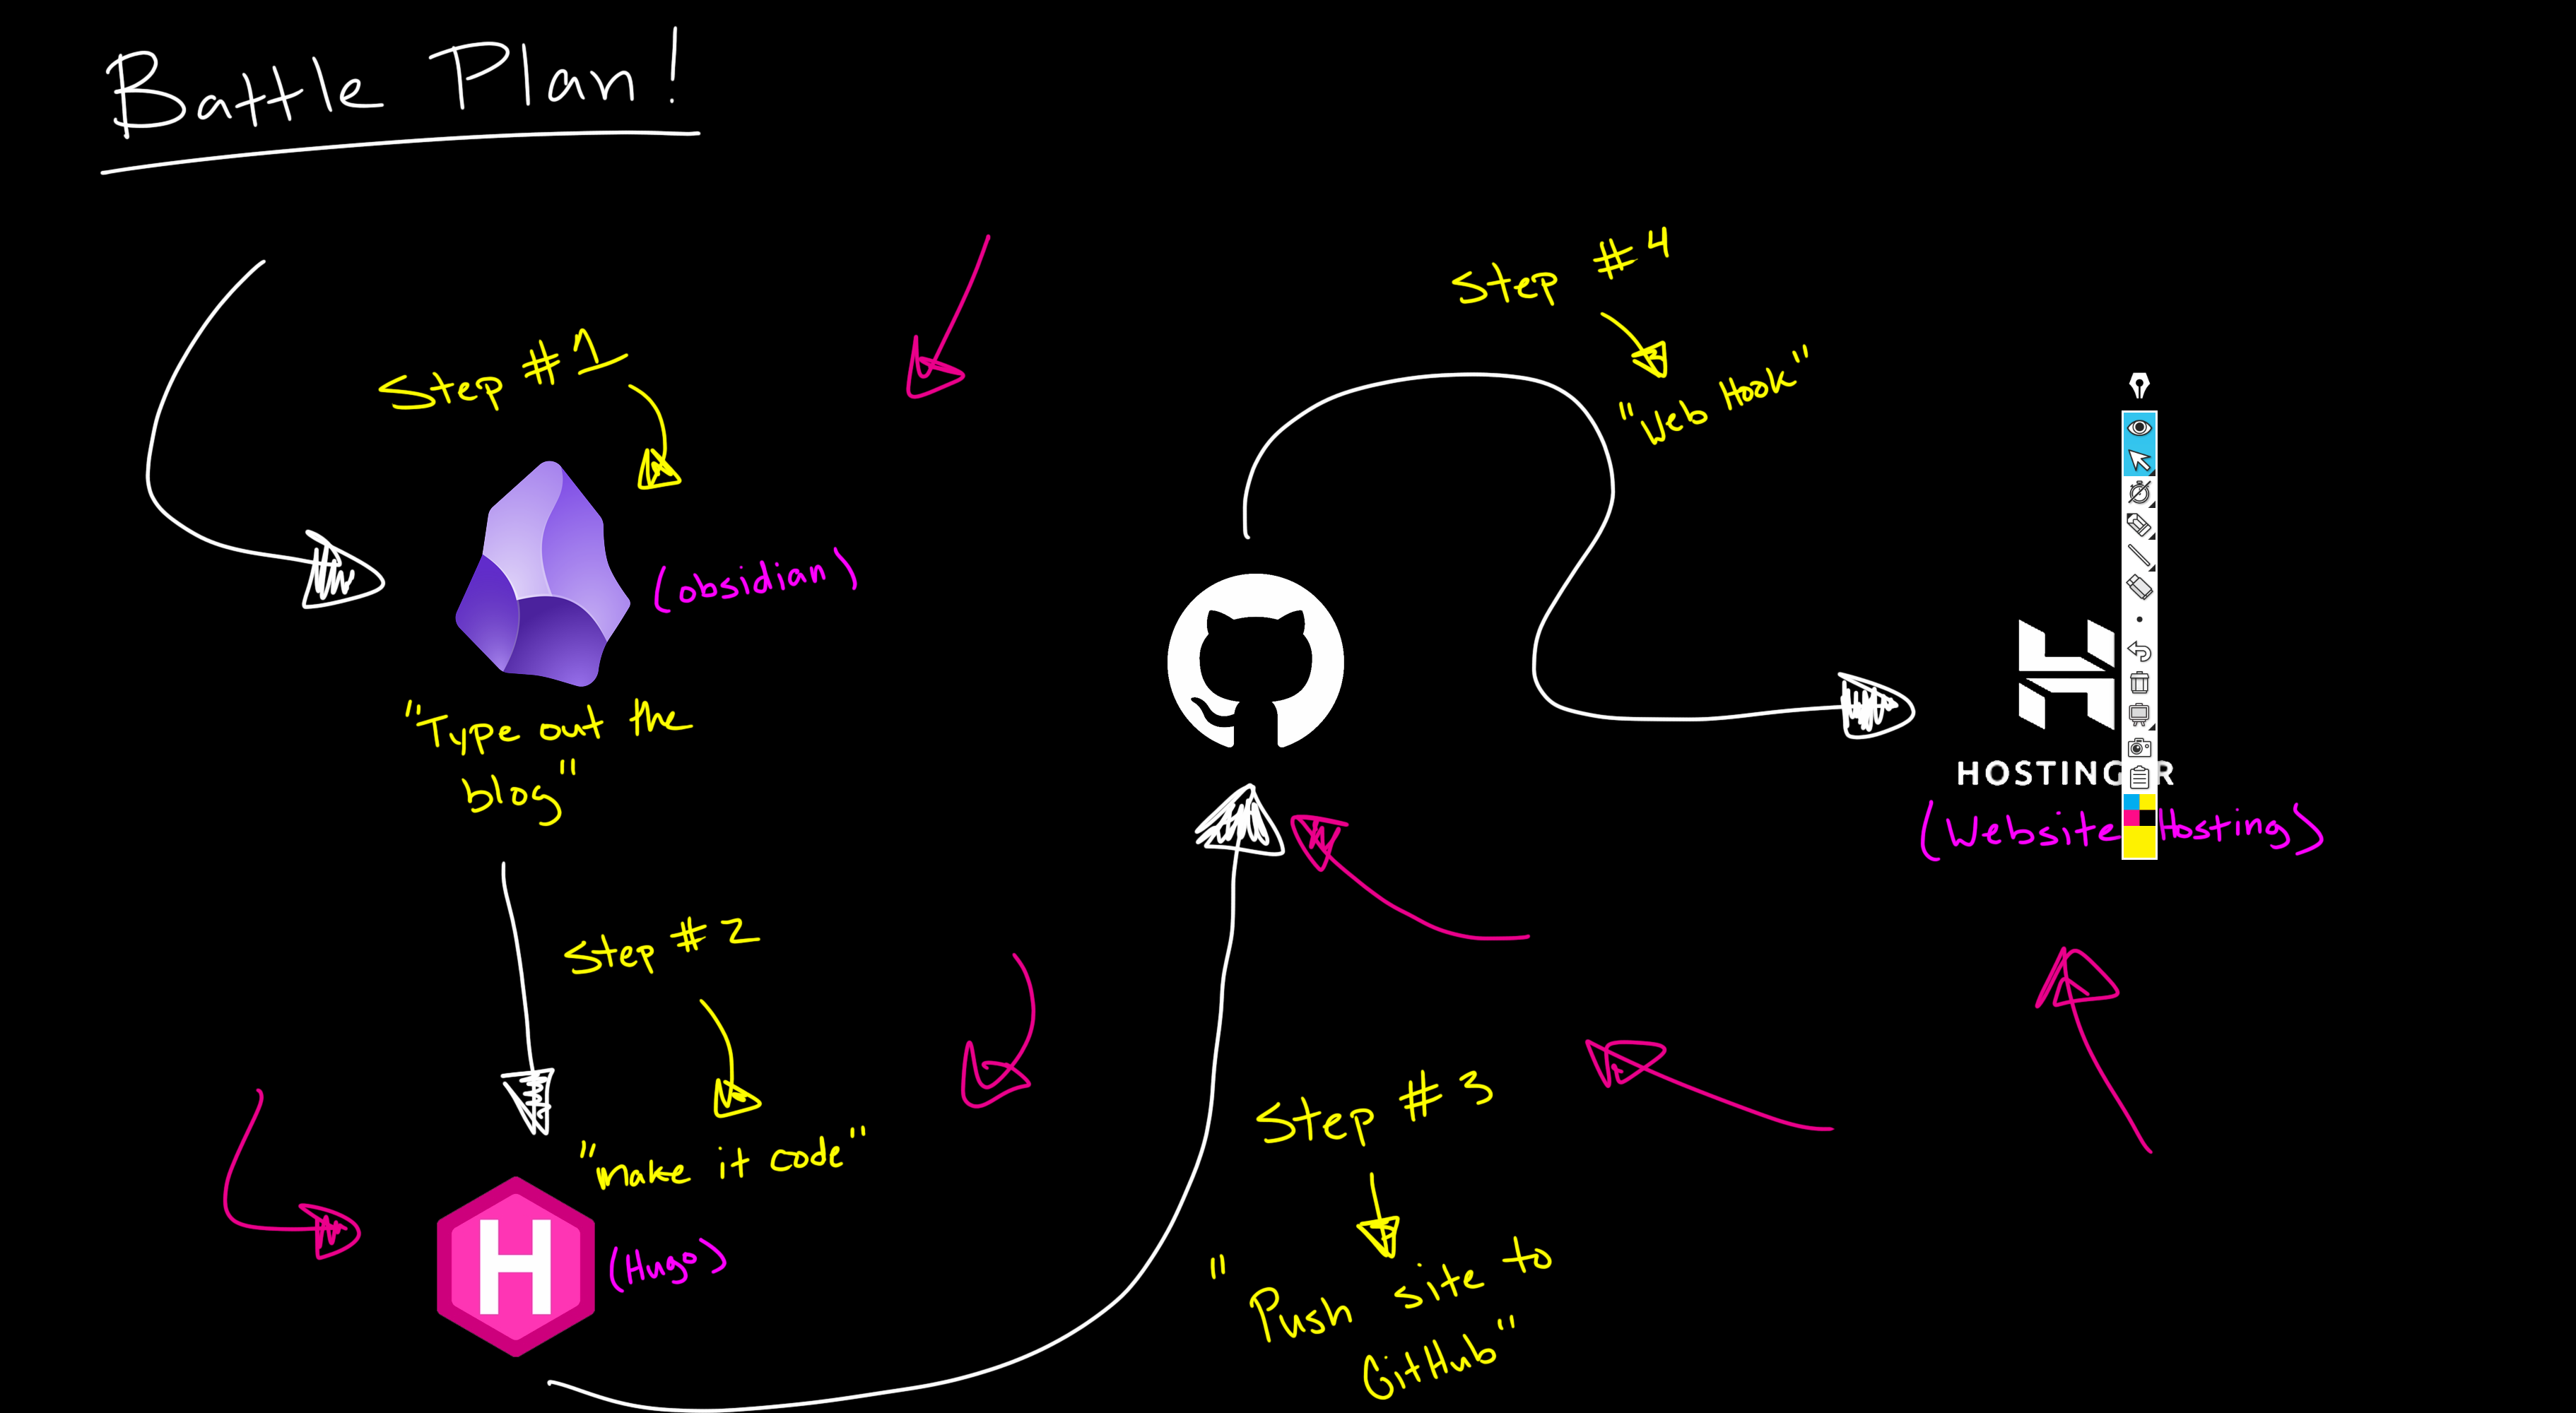 Battle Plan!
Step #1
(obsidian)
"Type out the
blog"
Step #2
"make it code"
H
(Hugo)
Step #3
"Push site to
GitHub"
Step #4
"Web Hook"
HOSTINGER
(Website Hosting)